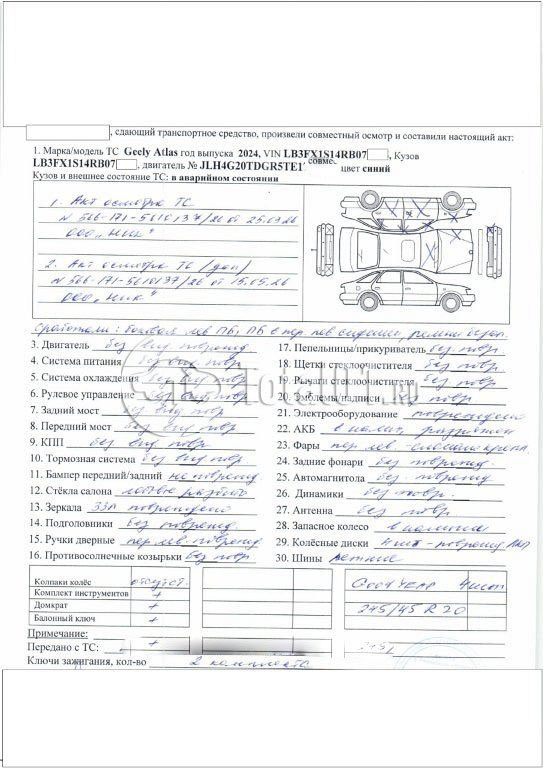 , сдающий транспортное средство, произвели совместный осмотр и составили настоящий акт:
1. Марка/модель ТС Geely Atlas год выпуска 2024, VIN LB3FX1S14RB07 , Кузов
LB3FX1S14RB07 , двигатель № JLH4G20TDGR5TE1 совме цвет синий
Кузов и внешнее состояние ТС: в аварийном состоянии
1. Акт осмотра ТС
ООО „НИК"
2. Акт осмотра ТС (доп)
ООО „НИК"
Сработали: боковая лев ПБ, ПБ в пер. лев сидении, ремни безоп.
3. Двигатель без вид поврежд
4. Система питания без вид поврежд
5. Система охлаждения без вид повр
6. Рулевое управление без вид повр
7. Задний мост без вид повр
8. Передний мост без вид повр
9. КПП без вид повр
10. Тормозная система без вид повр
11. Бампер передний/задний не поврежд
12. Стёкла салона
13. Зеркала ЗЗЛ повреждено
14. Подголовники без поврежд
15. Ручки дверные пер лев поврежд
16. Противосолнечные козырьки без повр
17. Пепельницы/прикуриватель без повр.
18. Щетки стеклоочистителя без повр.
19. Рычаги стеклоочистителя без повр.
20. Эмблемы/надписи без повр
21. Электрооборудование повреждено
22. АКБ в налич, разряжен
23. Фары пер лев - сломано крепл
24. Задние фонари без поврежд.
25. Автомагнитола без поврежд
26. Динамики без повр.
27. Антенна без повр
28. Запасное колесо в наличии
29. Колёсные диски 4 шт - поврежд
30. Шины летние
Колпаки колёс отсутст.
Комплект инструментов +
Домкрат +
Балонный ключ +
GOODYEAR 4 шт
245/45 R 20
Примечание:
Передано с ТС:
Ключи зажигания, кол-во 2 комплекта
TotalCar.ru